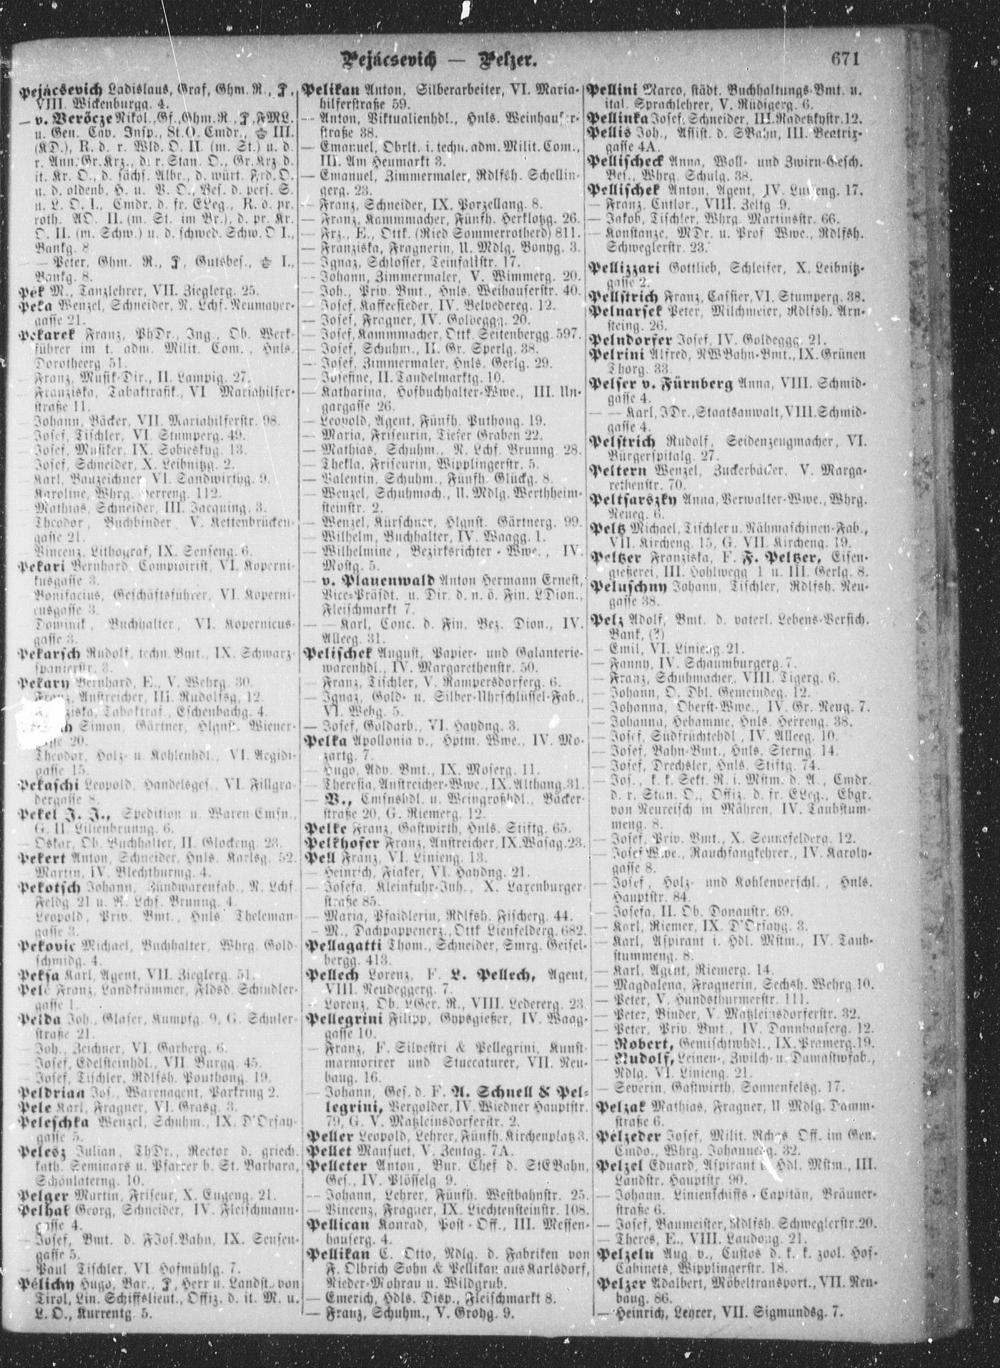 Pejácsevich — Pelzer.
671
Pejácsevich Ladislaus, Graf, Ghm. R.,
VIII. Wickenburgg. 4.
— v. Veröcze Nikol., Gf., Ghm. R., FML.
u. Gen. Cav. Insp., St. O. Cmdr., III.
(KD.), R. d. r. Wld. O. II (m. St.) u. d.
r. Ann. Gr. Krz., d. r. Stan. O., Gr. Krz d.
it. Kr. O., d. sächs. Albr., d. würt. Frd. O.
u. d. oldenb. H. u. V. O., Bes. d. pers. S.
u. L. O. I., Cmdr. d. fr. ELeg., R. d. pr.
roth. AO. II. (m. St. im Br.), d. pr. Kr.
O. II. (m. Schw.) u. d. schwed. Schw. O I.,
Bankg. 8
— Peter, Ghm. R., Gutsbes., I.,
Bankg. 8.
Pek M., Tanzlehrer, VII. Zieglerg. 25.
Peka Wenzel, Schneider, N. Lchf. Neumayer-
gasse 21.
Pekarek Franz, PhDr., Ing., Ob. Werk-
führer im t. adm. Milit. Com., Hnls.
Dorotheerg 51.
— Franz, Musik-Dir., II. Lampig. 27.
— Franziska, Tabaktrafik, VI Mariahilfer-
straße 11.
— Johann, Bäcker, VII. Mariahilferstr. 98.
— Josef, Tischler, VI. Stumperg. 49.
— Josef, Musiker, IX. Sobieskyg. 13.
— Josef, Schneider, X. Leibnitzg. 2.
— Karl, Bauzeichner, VI. Sandwirthg. 9.
— Karoline, Whrg. Herreng. 112.
— Mathias, Schneider, III. Jacquing. 3.
— Theodor, Buchbinder, V. Kettenbrücken-
gasse 21.
— Vincenz, Lithograf, IX. Senseng. 6.
Pekari Bernhard, Comptoirist, VI. Koperni-
kusgasse 3.
— Bonifacius, Geschäftsführer, VI. Koperni-
cusgasse 3.
— Dominik, Buchhalter, VI. Kopernicus-
gasse 3.
Pekarsch Rudolf, techn. Bmt., IX. Schwarz-
spanierstr. 3.
Pekary Bernhard, E., V. Wehrg. 30.
— Franz, Anstreicher, III. Rudolfsg. 12.
Tabaktraf., Eschenbachg. 4.
Simon, Gärtner, Hlgnst. Wiener-
20.
— Theodor, Holz- u. Kohlenhdl., VI. Aegidi-
gasse 15.
Pekaschi Leopold, Handelsges., VI. Fillgra-
dergasse 8.
Pekel J. J., Spedition u. Waren-Cmsn.,
G. II. Lilienbrunng. 6.
— Oskar, Ob. Buchhalter, II. Glockeng. 23.
Pekert Anton, Schneider, Hnls. Karlsg. 52.
— Martin, IV. Blechthurmg. 4.
Pekotsch Johann, Zündwarenfab., N. Lchf.
Feldg 21 u. N. Lchf. Brunng. 4.
— Leopold, Priv. Bmt., Hnls. Theleman-
gasse 3.
Pekovic Michael, Buchhalter, Whrg. Gold-
schmidg. 4.
Peksa Karl, Agent, VII. Zieglerg. 51.
Franz, Landkrämmer, Fldsd. Schindler-
gasse 1.
Pelda Joh., Glaser, Kumpfg. 9, G. Schuler-
straße 21.
— Joh., Zeichner, VI. Garberg. 6.
— Josef, Edelsteinhdl., VII. Burgg. 45.
— Josef, Tischler, Rdlfsh. Pouthong. 19.
Peldrian Jos., Warenagent, Parkring 2.
Pele Karl, Fragner, VI. Grasg. 3.
Peleschka Wenzel, Schuhm., IX. D'Orsay-
gasse 5.
Pelesz Julian, ThDr., Rector d. griech.
kath. Seminars u. Pfarrer b. St. Barbara,
Schönlaterng. 10.
Pelger Martin, Friseur, X. Eugeng. 21.
Pelhak Georg, Schneider, IV. Fleischmann-
gasse 4.
— Josef, Bmt. d. FJos. Bahn, IX. Sensen-
gasse 5.
— Paul Tischler, VI Hofmühlg. 7.
Pélichy Hugo, Bar., Herr u. Landst. von
Tirol, Lin. Schiffslieut., Offiz. d. it. M. u.
L. O., Kurrentg. 5.
Pelikan Anton, Silberarbeiter, VI. Maria-
hilferstraße 59.
— Anton, Viktualienhdl., Hnls. Weinhauser-
straße 38.
— Emanuel, Obrlt. i. techn. adm. Milit. Com.,
III. Am Heumarkt 3.
— Emanuel, Zimmermaler, Rdlfsh. Schellin-
gerg. 23.
— Franz, Schneider, IX. Porzellang. 8.
— Franz, Kammmacher, Fünfh. Herklotzg. 26.
— Frz., E., Ottk. (Ried Sommerrotherd) 811.
— Franziska, Fragnerin, U. Mdlg. Bonyg. 3.
— Ignaz, Schlosser, Teinfaltstr. 17.
— Johann, Zimmermaler, V. Wimmerg. 20.
— Joh., Priv. Bmt., Hnls. Weihauserstr. 40.
— Josef, Kaffeesieder, IV. Belvedereg. 12.
— Josef, Fragner, IV. Goldegg. 20.
— Josef, Kammmacher, Ottk. Seitenbergg. 597.
— Josef, Schuhm., II. Gr. Sperlg. 38.
— Josef, Zimmermaler, Hnls. Gerlg. 29.
— Josefine, II. Tandelmarktg. 10.
— Katharina, Hofbuchhalter-Wwe., III. Un-
gargasse 26.
— Leopold, Agent, Fünfh. Puthong. 19.
— Maria, Friseurin, Tiefer Graben 22.
— Mathias, Schuhm., N. Lchf. Brunng. 28.
— Thekla, Friseurin, Wipplingerstr. 5.
— Valentin, Schuhm., Fünfh. Glückg. 8.
— Wenzel, Schuhmach., U. Mdlg. Werthheim-
steinstr. 2.
— Wenzel, Kürschner, Hlgnst. Gärtnerg. 99.
— Wilhelm, Buchhalter, IV. Waagg. 1.
— Wilhelmine, Bezirksrichter-Wwe., IV.
Mostg. 5.
— v. Plauenwald Anton Hermann Ernest,
Vice-Präsdt. u. Dir. d. n. ö. Fin. LDion.,
Fleischmarkt 7.
— — Karl, Conc. d. Fin. Bez. Dion., IV.
Alleeg. 31.
Pelischek August, Papier- und Galanterie-
warenhdl., IV. Margarethenstr. 50.
— Franz, Tischler, V. Rampersdorferg. 6.
— Ignaz, Gold- u. Silber-Uhrschlüssel-Fab.,
VI. Webg. 5.
— Josef, Goldarb., VI. Haydng. 3.
Pelka Apollonia v., Hptm. Wwe., IV. Mo-
zartg. 7.
— Hugo, Adv. Bmt., IX. Moserg. 11.
— Theresia, Anstreicher-Wwe., IX. Althang. 31.
— V., Emsnshdl. u. Weingroßhdl., Bäcker-
straße 20, G. Riemerg. 12.
Pelke Franz, Gastwirth, Hnls. Stiftg. 65.
Pelkhofer Franz, Anstreicher, IX. Wasag. 23.
Pell Franz, VI. Linieng. 13.
— Heinrich, Fiaker, VI. Haydng. 21.
— Josefa, Kleinfuhr-Inh., X. Laxenburger-
straße 85.
— Maria, Pfaidlerin, Rdlfsh. Fischerg. 44.
— M., Dachpappenerz., Ottk Lienfelderg. 682.
Pellagatti Thom., Schneider, Smrg. Geisel-
bergg. 413.
Pellech Lorenz, F. L. Pellech, Agent,
VIII. Neudeggerg. 7.
— Lorenz, Ob. LGer. R., VIII. Ledererg. 23.
Pellegrini Filipp, Gypsgießer, IV. Waag-
gasse 10.
— Franz, F. Silvestri & Pellegrini, Kunst-
marmorirer und Stuccaturer, VII. Neu-
baug. 16.
— Johann, Ges. d. F. A. Schnell & Pel-
legrini, Vergolder, IV. Wiedner Hauptstr.
79, G. V. Matzleinsdorferstr. 2.
Peller Leopold, Lehrer, Fünfh. Kirchenplatz 3.
Pellet Mansuet, V. Zentag. 7A.
Pelleter Anton, Bur. Chef d. StEBahn,
Ges., IV. Plösslg. 9.
— Johann, Lehrer, Fünfh. Westbahnstr. 25.
— Vincenz, Fragner, IX. Liechtensteinstr. 108.
Pellican Konrad, Post-Off., III. Messen-
hauserg. 4.
Pellikan C. Otto, Ndlg. d. Fabriken von
F. Olbrich Sohn & Pellikan aus Karlsdorf,
Nieder-Mohrau u. Wildgrub.
— Emerich, Hdls. Disp., Fleischmarkt 8.
— Franz, Schuhm., V. Grohg. 9.
Pellini Marco, städt. Buchhaltungs-Bmt. u.
ital. Sprachlehrer, V. Rüdigerg. 6.
Pellinka Josef, Schneider, III. Radetzkystr. 12.
Pellis Joh., Assist. d. SBahn, III. Beatrix-
gasse 4A.
Pellischeck Anna, Woll- und Zwirn-Gesch.
Bes., Whrg. Schulg. 38.
Pellischek Anton, Agent, IV. Luiseng. 17.
— Franz, Cutlor., VIII. Zeltg 9.
— Jakob, Tischler, Whrg. Martinsstr. 66.
— Konstanze, MDr. u. Prof Wwe., Rdlfsh.
Schweglerstr. 23.
Pellizzari Gottlieb, Schleifer, X. Leibnitz-
gasse 2.
Pellstrich Franz, Cassier, VI. Stumperg. 38.
Pelnarsek Peter, Milchmeier, Rdlfsh. Arn-
steing. 26.
Pelndorfer Josef, IV. Goldeggg. 21.
Pelrini Alfred, NWBahn-Bmt., IX. Grünen
Thorg. 33.
Pelser v. Fürnberg Anna, VIII. Schmid-
gasse 4.
— — Karl, JDr., Staatsanwalt, VIII. Schmid-
gasse 4.
Pelstrich Rudolf, Seidenzeugmacher, VI.
Bürgerspitalg. 27.
Peltern Wenzel, Zuckerbäcker, V. Marga-
rethenstr. 70.
Peltsarszky Anna, Verwalter-Wwe., Whrg.
Neueg. 6.
Peltz Michael, Tischler u. Nähmaschinen-Fab.,
VII. Kircheng. 15, G. VII. Kircheng. 19.
Peltzer Franziska, F. F. Peltzer, Eisen-
gießerei, III. Hohlwegg 1 u. III. Gerlg. 8.
Peluschny Johann, Tischler, Rdlfsh. Neu-
gasse 38.
Pelz Adolf, Bmt. d. vaterl. Lebens-Versich.
Bank, (?)
— Emil, VI. Linieng. 21.
— Fanny, IV. Schaumburgerg. 7.
— Franz, Schuhmacher, VIII. Tigerg. 6.
— Johann, O. Dbl. Gemeindeg. 12.
— Johanna, Oberst-Wwe., IV. Gr. Neug. 7.
— Johanna, Hebamme, Hnls. Herreng. 38.
— Josef, Südfrüchtehdl., IV. Alleeg. 10.
— Josef, Bahn-Bmt., Hnls. Sterng. 14.
— Josef, Drechsler, Hnls. Stiftg. 74.
— Jos., k. k. Sekt. R. i. Mstm. d. A., Cmdr.
d. r. Stan. O., Offiz. d. fr. ELeg., Ehgr.
von Neureisch in Mähren, IV. Taubstum-
meng. 8.
— Josef, Priv. Bmt., X. Sennefelderg. 12.
— Josef Wwe., Rauchfangkehrer., IV. Karoly-
gasse 8.
— Josef, Holz- und Kohlenverschl., Hnls.
Hauptstr. 84.
— Josefa, II. Ob. Donaustr. 69.
— Karl, Riemer, IX. D'Orsayg. 3.
— Karl, Aspirant i. Hdl. Mstm., IV. Taub-
stummeng. 8.
— Karl, Agent, Riemerg. 14.
— Magdalena, Fragnerin, Sechsh. Wehrg. 10.
— Peter, V. Hundsthurmerstr. 111.
— Peter, Binder, V. Matzleinsdorferstr. 32.
— Peter, Priv. Bmt., IV. Dannhauserg. 12.
— Robert, Gemischtwhdl., IX. Pramerg. 19.
— Rudolf, Leinen-, Zwilch- u. Damastwfab.,
Ndlg. VI. Linieng. 21.
— Severin, Gastwirth, Sonnenfelsg. 17.
Pelzak Mathias, Fragner, U. Mdlg. Damm-
straße 6.
Pelzeder Josef, Milit. Rchgs. Off. im Gen.
Cmdo., Whrg. Johannesg. 32.
Pelzel Eduard, Aspirant i. Hdl. Mstm., III.
Landstr. Hauptstr. 90.
— Johann, Linienschiffs-Capitän, Bräuner-
straße 6.
— Josef, Baumeister, Rdlfsh. Schweglerstr. 20.
— Theres, E., VIII. Laudong. 21.
Pelzeln Aug. v., Custos d. k. k. zool. Hof-
Cabinets, Wipplingerstr. 18.
Pelzer Adalbert, Möbeltransport., VII. Neu-
baug. 86.
— Heinrich, Lehrer, VII. Sigmundsg. 7.